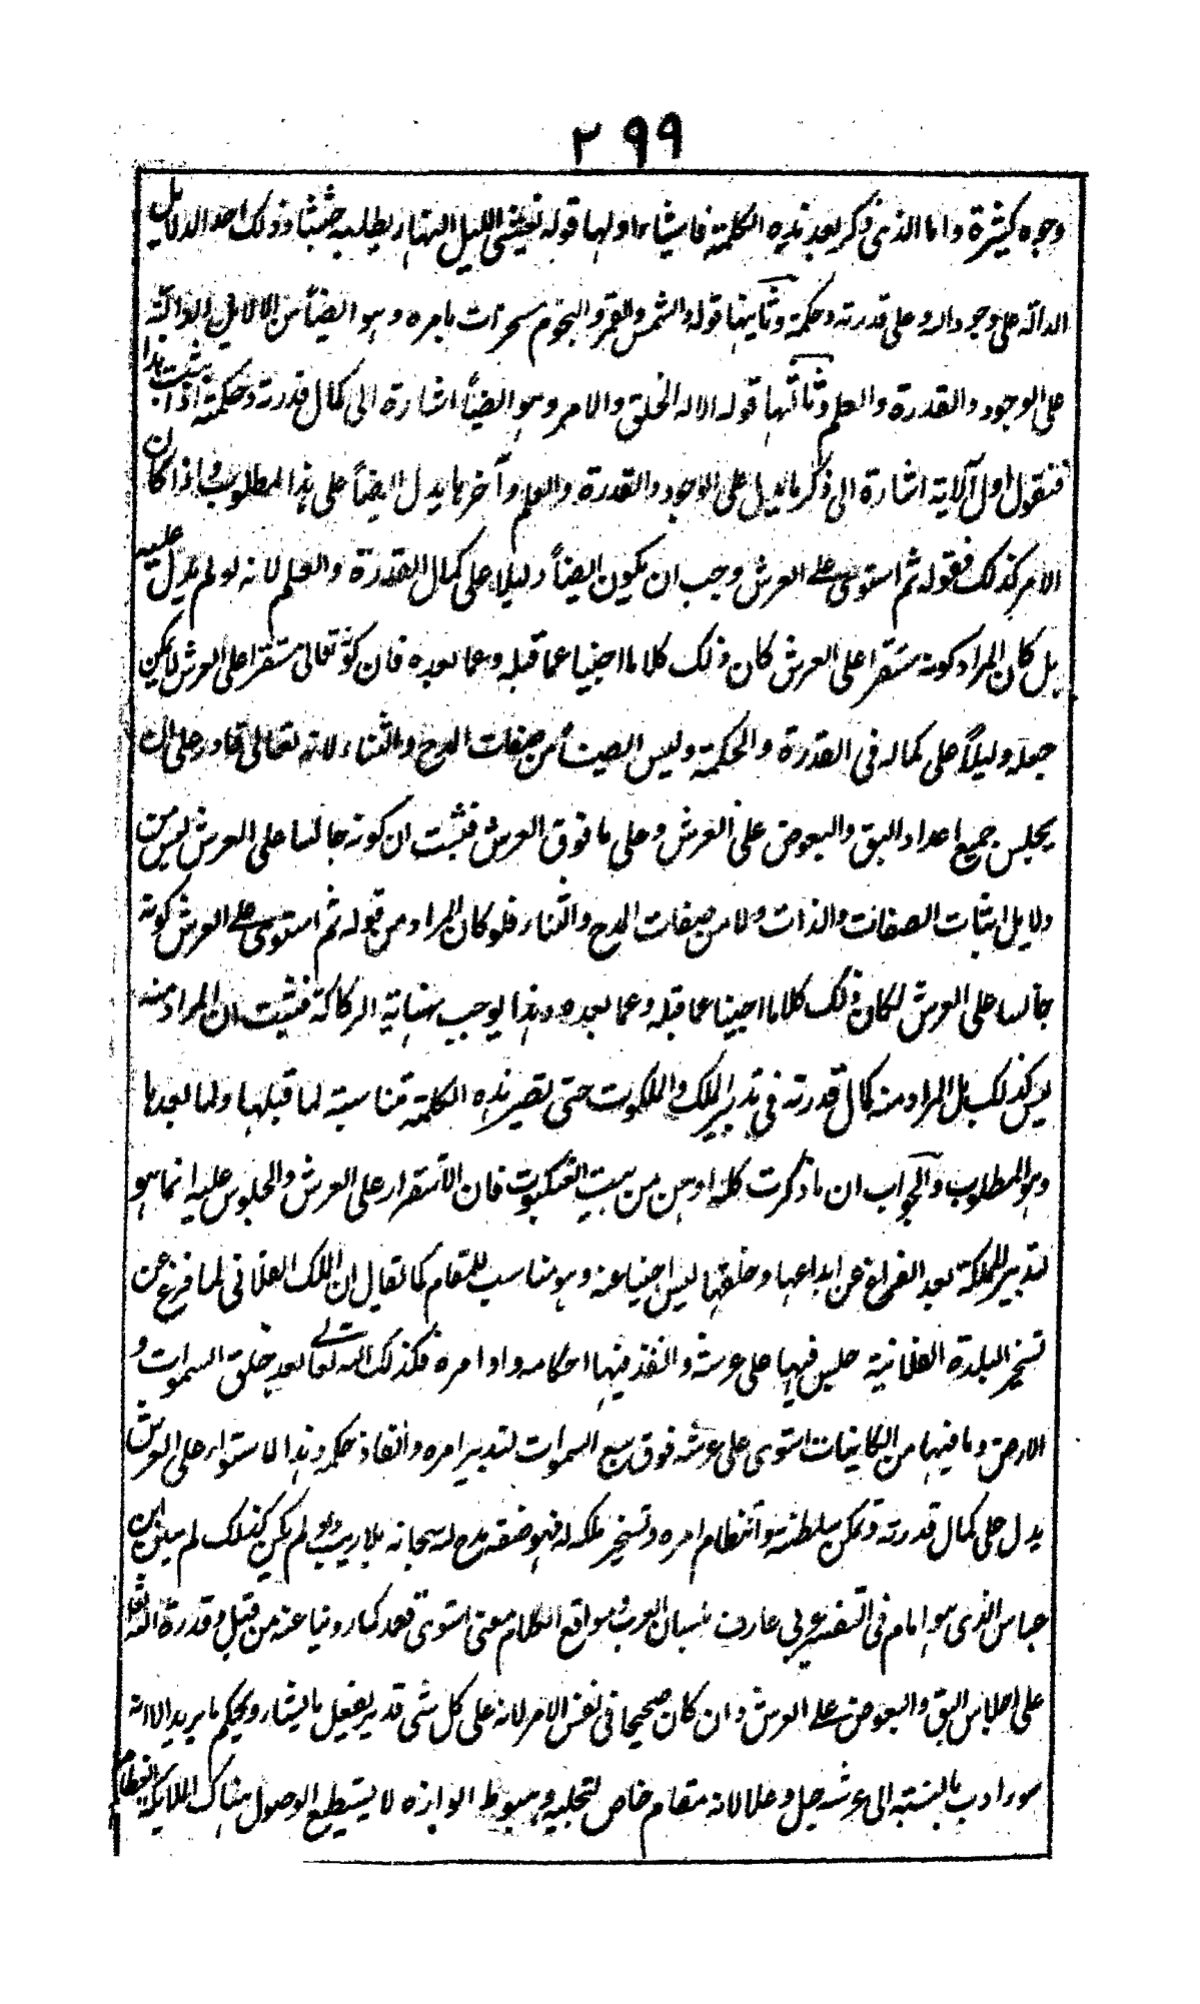 ٢٩٩
وجوه كثيرة واما الذى ذكر بعد هذه الكلمة فاشياء اولها قوله يغشى الليل النهار يطلبه حثيثا وذلك احد الدلايل
الدالة على وجود الله وعلى قدرته وحكمته وثانيها قوله والشمس والقمر والنجوم مسخرات بامره وهو ايضاً من الدلايل الدالة
على الوجود والقدرة والعلم وثالثها قوله الا له الخلق والامر وهو ايضاً اشارة الى كمال قدرته وحكمته اذا ثبت هذا
فنقول اول الآية اشارة الى ذكر ما يدل على الوجود والقدرة والعلم وآخرها يدل ايضاً على هذا المطلوب واذا كان
الامر كذلك فقوله ثم استوى على العرش وجب ان يكون ايضاً دليلا على كمال القدرة والعلم لانه لو لم يدل عليه
بل كان المراد كونه مستقرا على العرش كان ذلك كلاما اجنبيا عما قبله وعما بعده فان كونه تعالى مستقرا على العرش لا يمكن
جعله دليلاً على كماله فى القدرة والحكمة وليس ايضاً من صفات المدح والثناء لانه تعالى قادر على ان
يجلس جميع اعداد البق والبعوض على العرش وعلى ما فوق العرش فثبت ان كونه جالسا على العرش ليس من
دلايل اثبات الصفات والذات ولا من صفات المدح والثناء فلو كان المراد من قوله ثم استوى على العرش كونه
جالسا على العرش لكان ذلك كلاما اجنبيا عما قبله وعما بعده وهذا يوجب نهاية الركاكة فثبت ان المراد منه
ليس كذلك بل المراد منه كمال قدرته فى تدبير الملك والملكوت حتى تصير هذه الكلمة مناسبة لما قبلها ولما بعدها
وهو المطلوب والجواب ان ما ذكرت كله اوهن من بيت العنكبوت فان الاستقرار على العرش والجلوس عليه انما هو
لتدبير المملكة بعد الفراغ عن ابداعها وخلقها ليس اجنبيا عنه وهو مناسب للمقام كما تقال ان الملك الفلانى لما فرغ عن
تسخير البلدة الفلانية جلس فيها على عرشه وانفذ فيها احكامه واوامره فكذلك الله تعالى بعد خلق السموات و
الارض وما فيها من الكاينات استوى على عرشه فوق سبع السموات لتدبير امره وانفاذ حكمه وهذا الاستواء على العرش
يدل على كمال قدرته وتمكن سلطنته وانتظام امره وتسخير ملكه له فهو صفة مدح له سبحانه بلا ريب ولو لم يكن كذلك لم يبين ابن
عباس الذى هو امام فى التفسير عربى عارف بلسان العرب ومواقع الكلام معنى استوى قعد كما روينا عنه من قبل وقدرة الله تعالى
على اجلاس البق والبعوض على العرش وان كان صحيحا فى نفس الامر لانه على كل شى قدير يفعل ما يشاء ويحكم ما يريد الا انه
سوء ادب بالنسبة الى عرشه جل وعلا لانه مقام خاص لتجليه وهبوط انواره لا يستطيع الوصول هناك الملايكة العظام